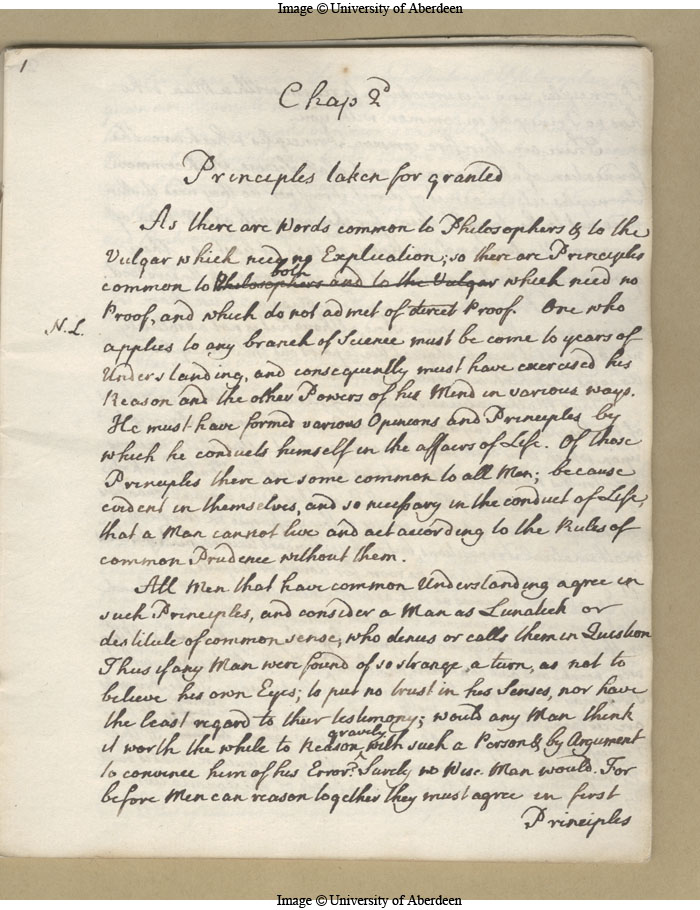 Image © University of Aberdeen
1
Chap 2d
Principles taken for granted
As there are Words common to Philosophers & to the
Vulgar which need no Explication; so there are Principles
both
common to Philosophers and to the Vulgar which need no
Proof, and which do not admit of direct Proof. One who
N. L.
applies to any branch of Science must be come to years of
Understanding, and consequently must have exercised his
Reason and the other Powers of his Mind in various ways.
He must have formed various Opinions and Principles by
which he conducts himself in the affairs of Life. Of those
Principles there are some common to all Men; because
evident in themselves, and so necessary in the conduct of Life,
that a Man cannot live and act according to the Rules of
common Prudence without them.
All Men that have common Understanding agree in
such Principles, and consider a Man as Lunatick or
destitute of common sense, who denies or calls them in Question
Thus if any Man were found of so strange a turn, as not to
believe his own Eyes; to put no trust in his Senses, nor have
the least regard to their testimony; would any Man think
gravely
it worth the while to Reason with such a Person & by Argument
to convince him of his Error? Surely no Wise Man would. For
before Men can reason together they must agree in first
Principles
Image © University of Aberdeen